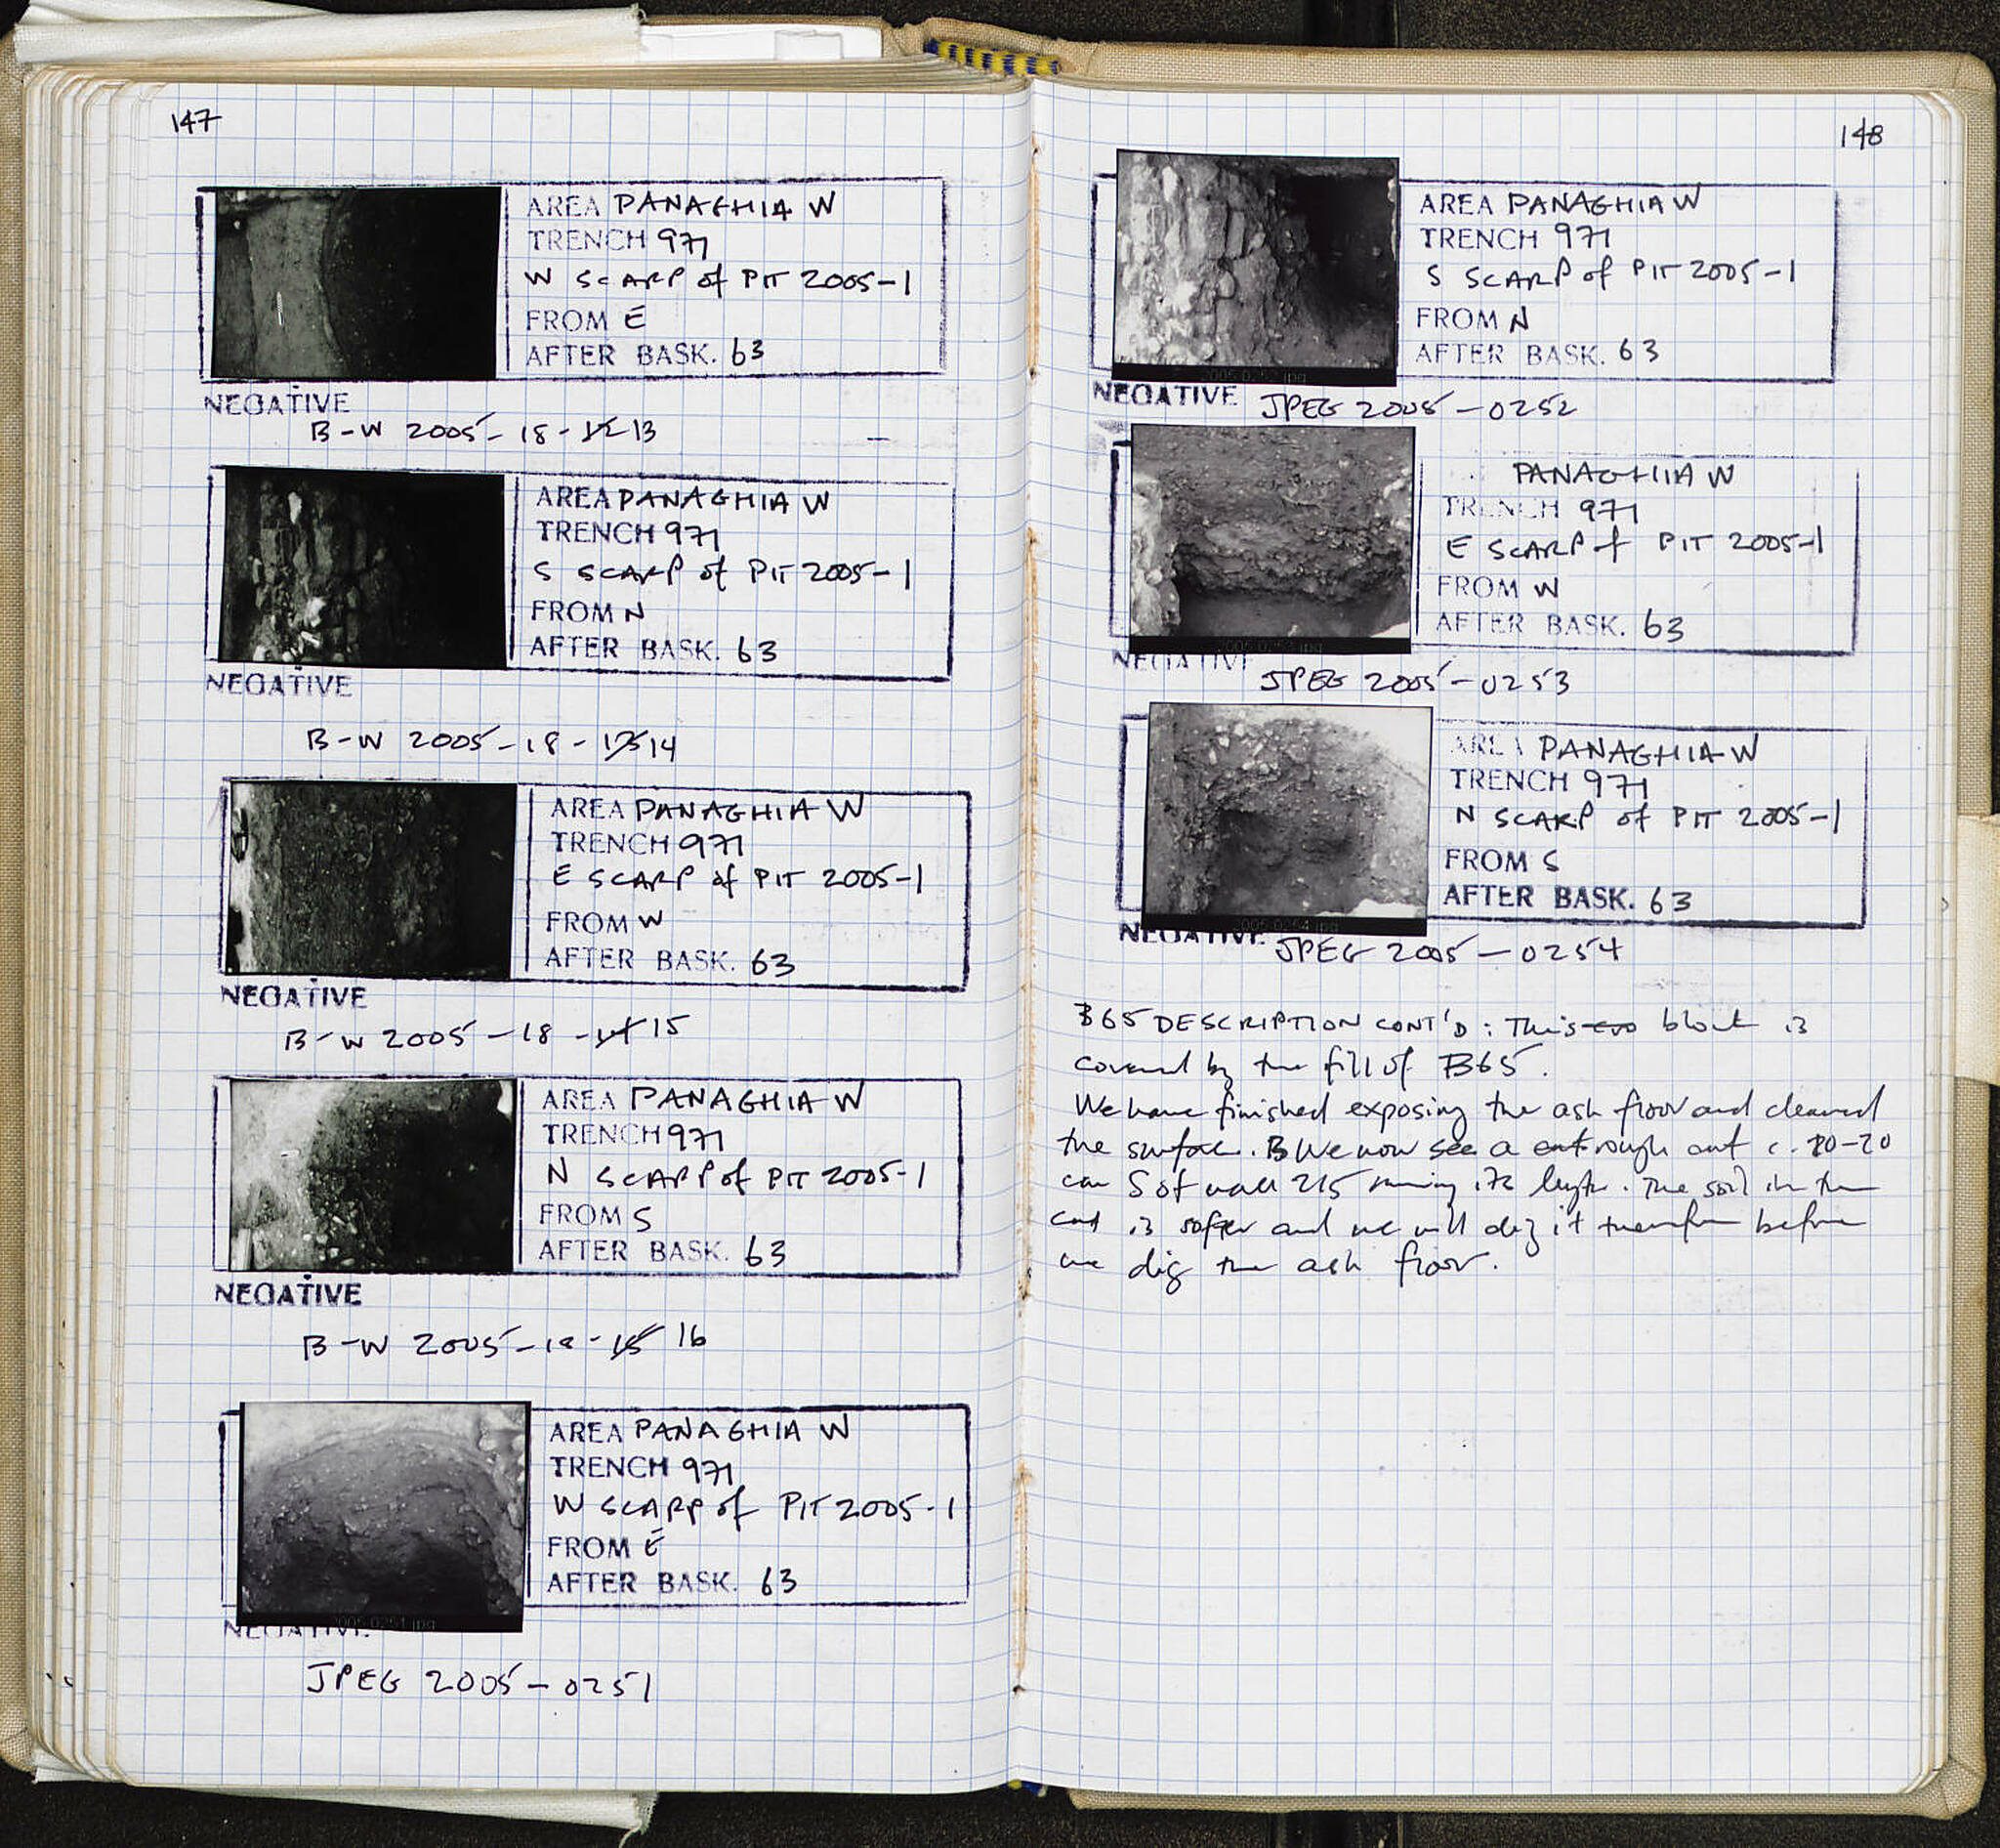 147
AREA PANAGHIA W
TRENCH 971
W SCARP of PIT 2005-1
FROM E
AFTER BASK. 63
NEGATIVE
B-W 2005-18-12 13
AREA PANAGHIA W
TRENCH 971
S SCARP of PIT 2005-1
FROM N
AFTER BASK. 63
NEGATIVE
B-W 2005-18-13 14
AREA PANAGHIA W
TRENCH 971
E SCARP of PIT 2005-1
FROM W
AFTER BASK. 63
NEGATIVE
B-W 2005-18-14 15
AREA PANAGHIA W
TRENCH 971
N SCARP of PIT 2005-1
FROM S
AFTER BASK. 63
NEGATIVE
B-W 2005-18-15 16
AREA PANAGHIA W
TRENCH 971
W SCARP of PIT 2005-1
FROM E
AFTER BASK. 63
2005-0251.jpg
NEGATIVE
JPEG 2005-0251
148
AREA PANAGHIA W
TRENCH 971
S SCARP of PIT 2005-1
FROM N
AFTER BASK. 63
2005-0252.jpg
NEGATIVE JPEG 2005-0252
PANAGHIA W
TRENCH 971
E SCARP of PIT 2005-1
FROM W
AFTER BASK. 63
2005-0253.jpg
NEGATIVE
JPEG 2005-0253
AREA PANAGHIA W
TRENCH 971
N SCARP of PIT 2005-1
FROM S
AFTER BASK. 63
2005-0254.jpg
NEGATIVE JPEG 2005-0254
B65 DESCRIPTION CONT'D: This block is
covered by the fill of B65.
We have finished exposing the ash floor and cleaned
the surface. B We now see a cut rough cut c. 10-20
cm S of wall 215 running its length. The soil in the
cut is softer and we will dig it therefore before
we dig the ash floor.